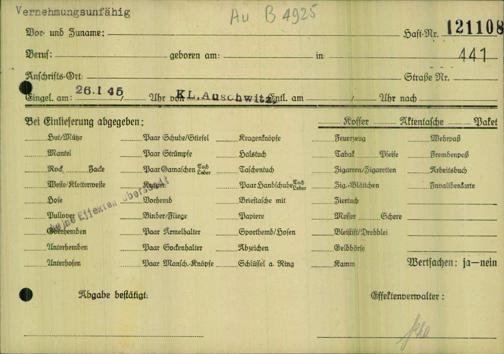 Vernehmungsunfähig
Au B 4925
Vor- und Zuname: Haft-Nr. 121108
Beruf: geboren am: in 441
Anschrifts-Ort: Straße Nr.
Eingel. am 26.1.45 Uhr von KL.Auschwitz Entl. am Uhr nach
Bei Einlieferung abgegeben: Koffer Aktentasche Paket
Hut/Mütze Paar Schuhe/Stiefel Kragenknöpfe Feuerzeug Wehrpaß
Mantel Paar Strümpfe Halstuch Tabak Pfeife Fremdenpaß
Rock Jacke Paar Gamaschen Tuch Leder Taschentuch Zigarren/Zigaretten Arbeitsbuch
Weste/Kletterweste Kragen Paar Handschuhe Tuch Leder Zig.-Blättchen Invalidenkarte
Hose Vorhemd Brieftasche mit Ziertuch
Pullover Binder/Fliege Papiere Messer Schere
Oberhemden Paar Ärmelhalter Sporthemd/Hosen Bleistift/Drehblei
Unterhemden Paar Sockenhalter Abzeichen Geldbörse
Unterhosen Paar Mansch.-Knöpfe Schlüssel a. Ring Kamm Wertsachen: ja—nein
keine Effekten übersandt
Abgabe bestätigt: Effektenverwalter: